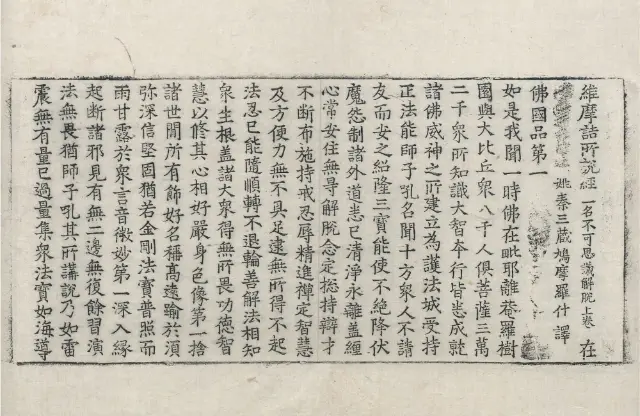 維摩詰所說經 一名不可思議解脫上卷 在
姚秦三藏鳩摩羅什 譯
佛國品第一
如是我聞一時佛在毗耶離菴羅樹
園與大比丘衆八千人俱菩薩三萬
二千衆所知識大智本行皆悉成就
諸佛威神之所建立為護法城受持
正法能師子吼名聞十方衆人不請
友而安之紹隆三寶能使不絶降伏
魔怨制諸外道悉已清淨永離盖纏
心常安住無㝵解脫念定捴持辯才
不断布施持戒忍辱精進禪定智慧
及方便力無不具足逮無所得不起
法忍已能隨順轉不退輪善解法相知
衆生根盖諸大衆得無所畏功德智
慧以修其心相好嚴身色像第一捨
諸世間所有飾好名稱高遠踰於湏
弥深信堅固猶若金剛法寶普照而
雨甘露於衆言音微妙第一深入緣
起断諸邪見有無二邊無復餘習演
法無畏猶師子吼其所講說乃如雷
震無有量已過量集衆法寶如海導